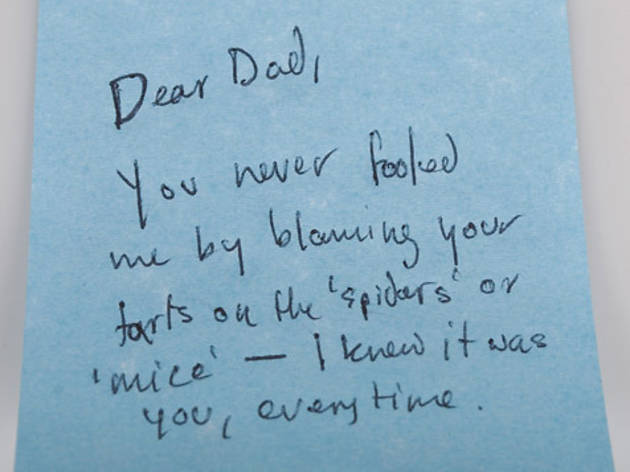 Dear Dad,
You never fooled
me by blaming your
farts on the 'spiders' or
'mice' — I knew it was
you, every time.